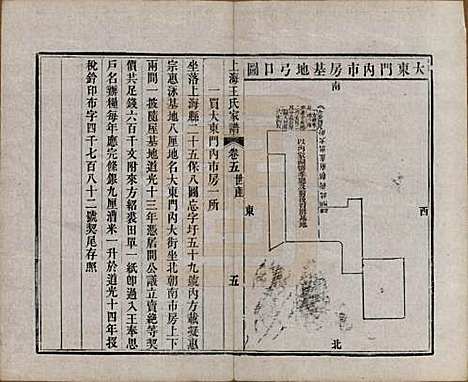 大東門內市房基地弓口圖
南
西
東
北
上海王氏家譜 卷五 世產 五
一買大東門內市房一所
坐落上海縣二十五保八圖忘字圩五十九號內方載擬惠
宗惠泳基地八厘地名大東門內大街坐北朝南市房上下
兩間一披隨屋基地道光十三年憑盾間公議立賣絕等契
價共足錢六百千文即將來方紹裘田單一紙卽過入王奉思
戶名辦糧每年應完條銀九厘漕米一升於道光十四年投
稅鈐印布字四千七百八十二號契尾存照